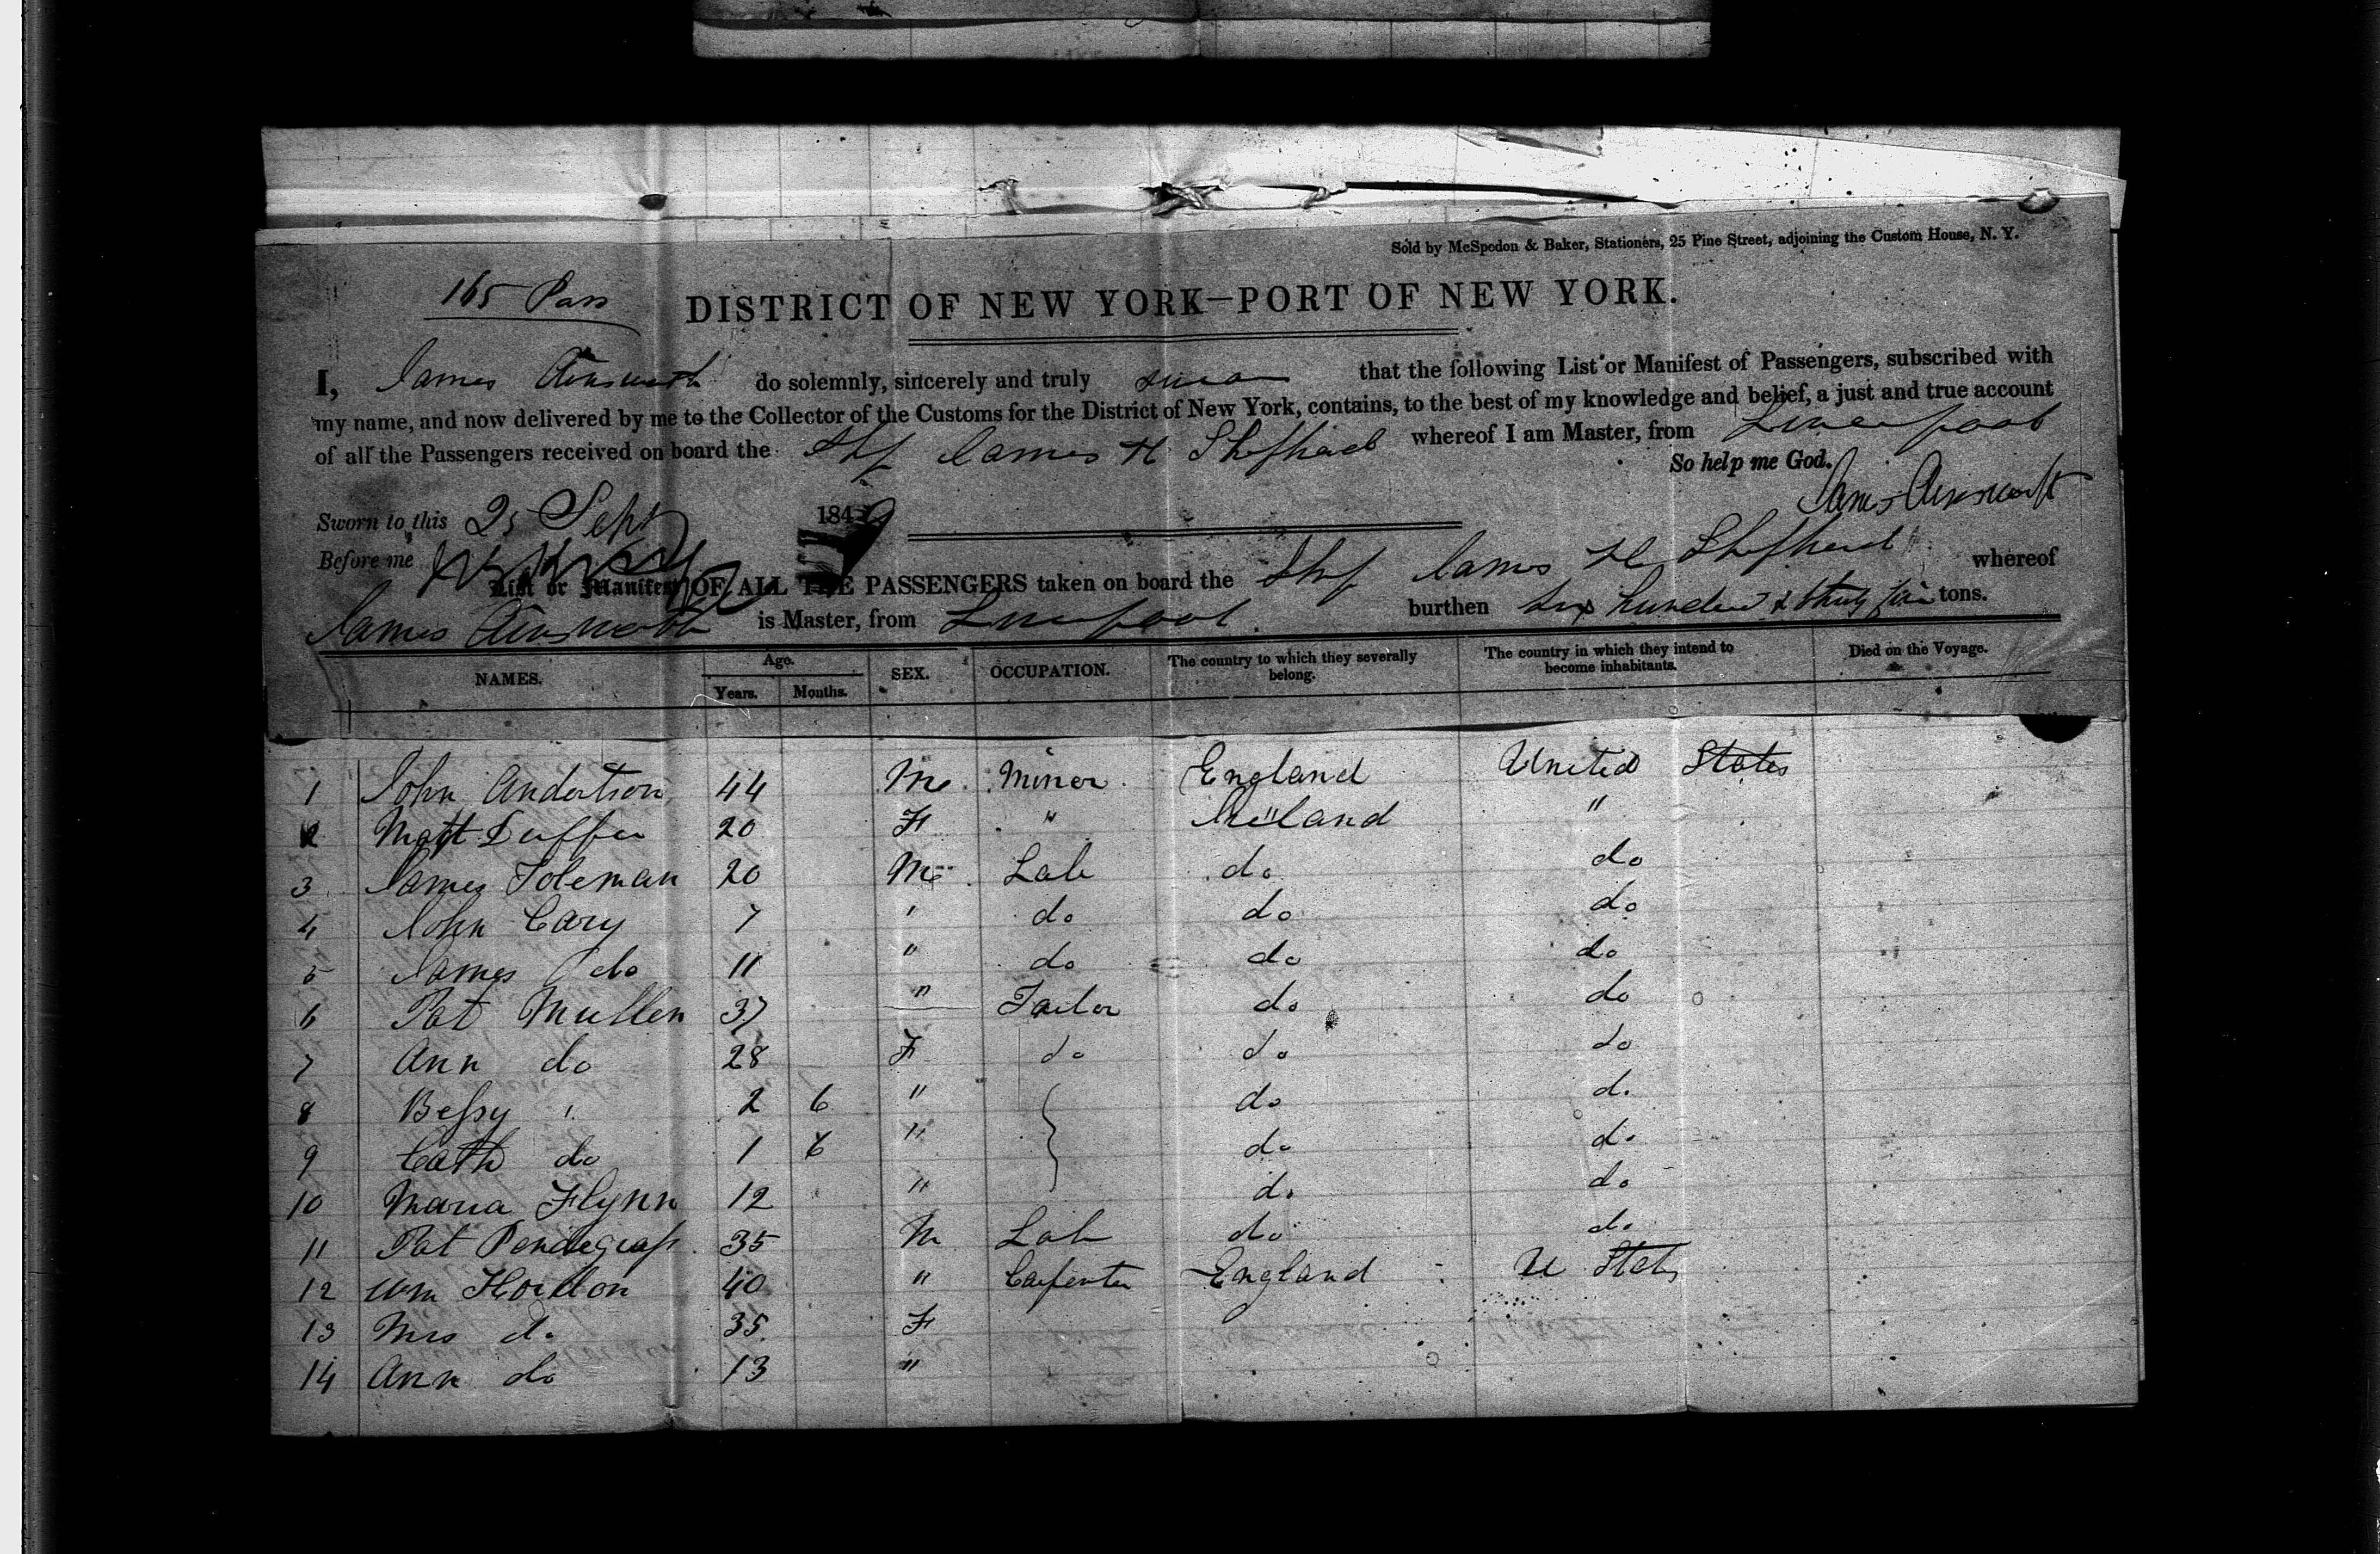 Sold by McSpedon & Baker, Stationers, 25 Pine Street, adjoining the Custom House, N. Y.
165 Pass
DISTRICT OF NEW YORK—PORT OF NEW YORK.
I, James Ainsworth do solemnly, sincerely and truly swear that the following List or Manifest of Passengers, subscribed with
my name, and now delivered by me to the Collector of the Customs for the District of New York, contains, to the best of my knowledge and belief, a just and true account
of all the Passengers received on board the Ship James H Shephard whereof I am Master, from Liverpool
So help me God.
James Ainsworth
Sworn to this 25 Sept 1849
Before me
List or Manifest OF ALL THE PASSENGERS taken on board the Ship James H Shepherd whereof
James Ainsworth is Master, from Liverpool burthen Six hundred & thirty four tons.
NAMES. Age. Years. Months. SEX. OCCUPATION. The country to which they severally belong. The country in which they intend to become inhabitants. Died on the Voyage.
1 John Anderson 44 M Miner England United States
2 Matt Duffee 20 F " Ireland "
3 James Toleman 20 M Lab do do
4 John Cary 7 " do do do
5 James do 11 " do do do
6 Pat Mullen 37 " Tailor do do
7 Ann do 28 F do do do
8 Bessy " 2 6 " do do
9 Cath do 1 6 " do do
10 Maria Flynn 12 " do do
11 Pat Pendegrass 35 M Lab do do
12 Wm Hordon 40 " Carpenter England U States
13 Mrs do 35 F
14 Ann do 13 "